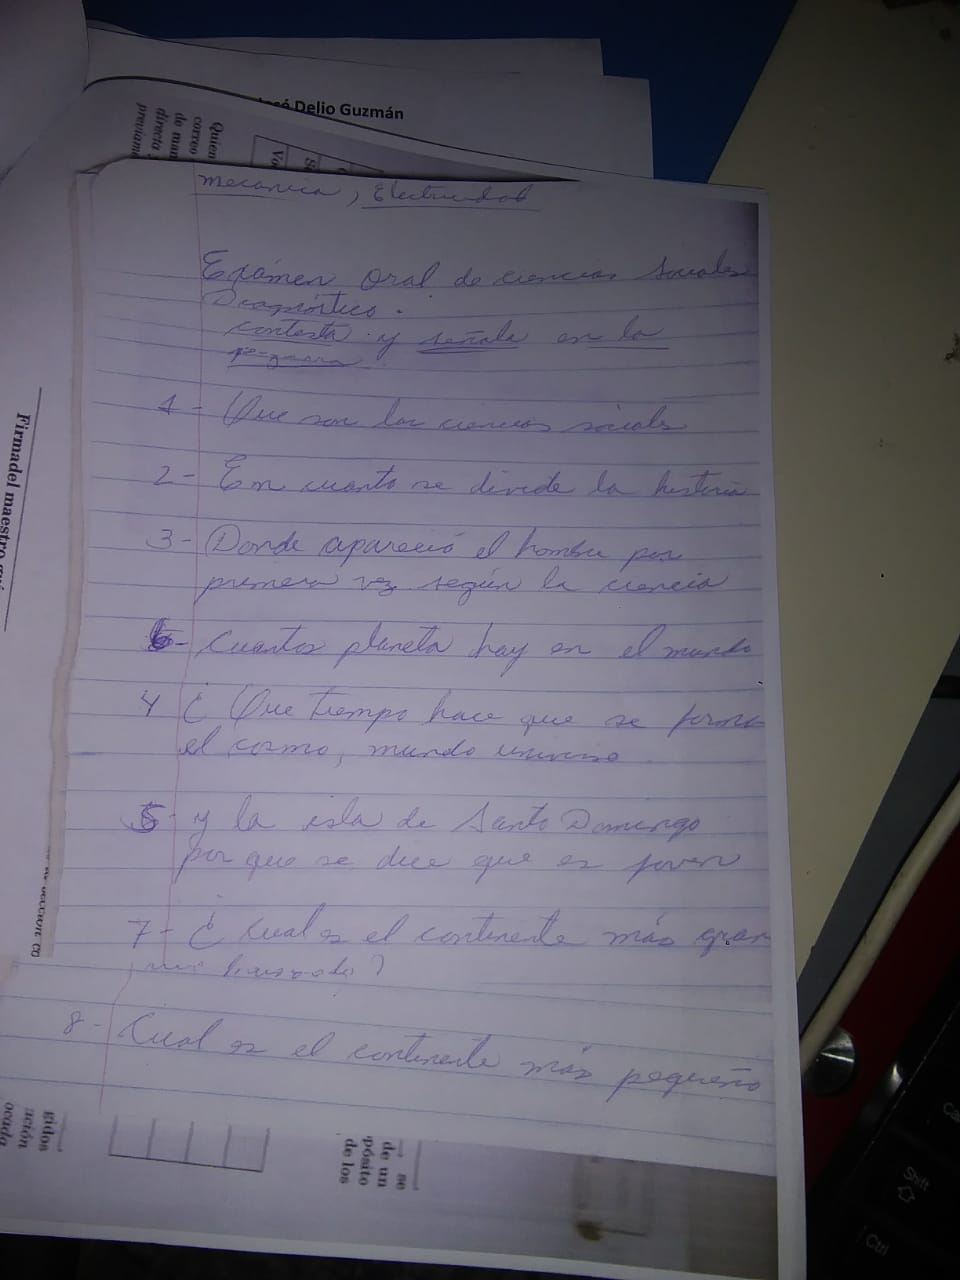 José Delio Guzmán
Quien
correo
de man
directa
previam
mecanica, Electricidad
Exámen Oral de ciencias Sociales
Diagnóstico.
contesta y señala en la
1- Que son las ciencias sociales
2- En cuanto se divide la historia
3- Donde apareció el hombre por
primera vez según la ciencia
6- Cuantos planeta hay en el mundo
4 ¿ Que tiempo hace que se formo
el cosmo, mundo universo
5- y la isla de Santo Domingo
por que se dice que es joven
7- ¿ Cual es el continente más gran
8- Cual es el continente más pequeño
Firmadel maestro
gidos
ación
ocada
se
de un
pósito
de los
Shift
Ctrl